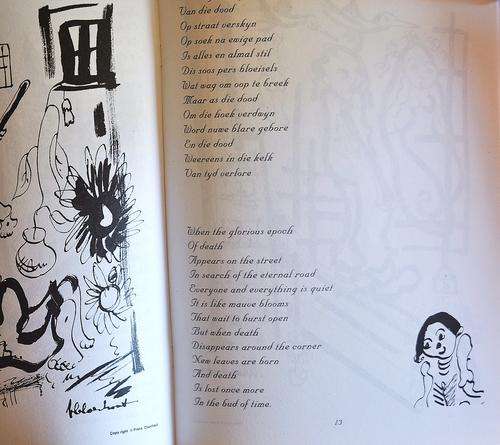 Van die dood
Op straat verskyn
Op soek na ewige pad
Is alles en almal stil
Dis soos pers bloeisels
Wat wag om oop te breek
Maar as die dood
Om die hoek verdwyn
Word nuwe blare gebore
En die dood
Weereens in die kelk
Van tyd verlore
When the glorious epoch
Of death
Appears on the street
In search of the eternal road
Everyone and everything is quiet
It is like mauve blooms
That wait to burst open
But when death
Disappears around the corner
New leaves are born
And death
Is lost once more
In the bud of time.